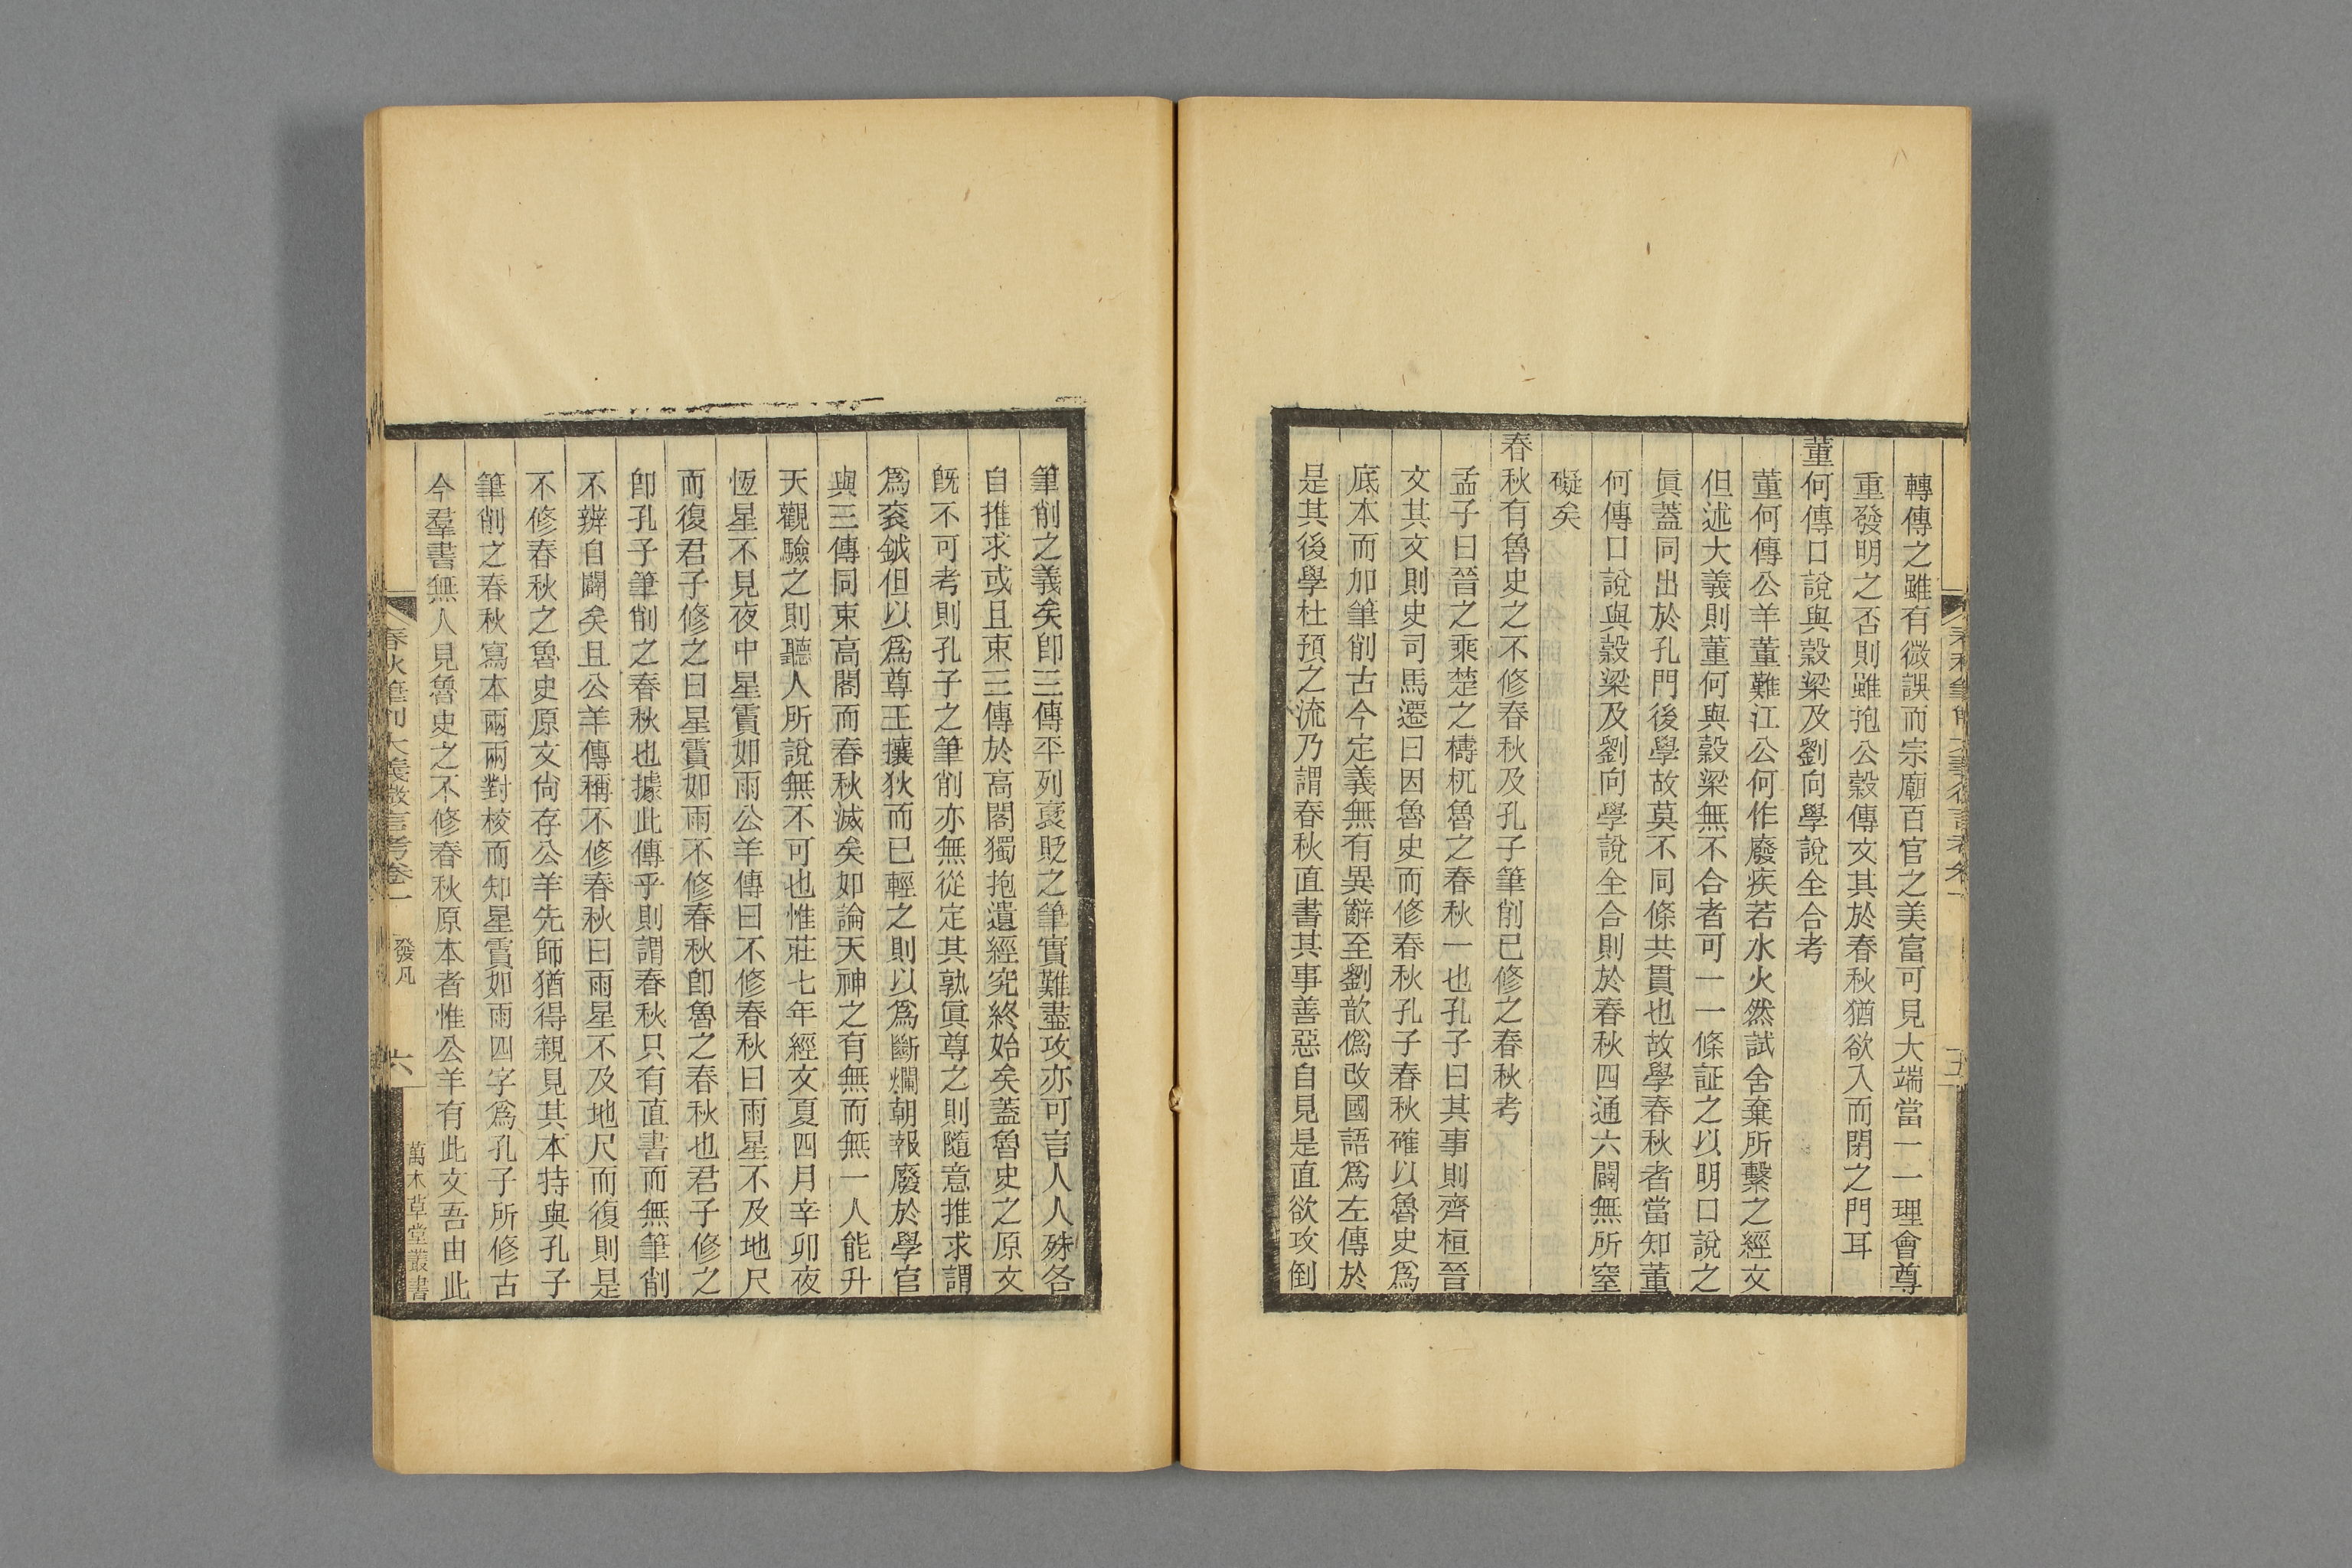 轉傳之雖有微誤而宗廟百官之美富可見大端當一一理會尊
重發明之否則雖抱公穀傳文其於春秋猶欲入而閉之門耳
董何傳口說與穀梁及劉向學說全合考
董何傳公羊董難江公何作廢疾若水火然試舍棄所繫之經文
但述大義則董何與穀梁無不合者可一一條証之以明口說之
眞蓋同出於孔門後學故莫不同條共貫也故學春秋者當知董
何傳口說與穀梁及劉向學說全合則於春秋四通六闢無所窒
礙矣
春秋有魯史之不修春秋及孔子筆削已修之春秋考
孟子曰晉之乘楚之檮杌魯之春秋一也孔子曰其事則齊桓晉
文其文則史司馬遷曰因魯史而修春秋孔子春秋確以魯史爲
底本而加筆削古今定義無有異辭至劉歆僞改國語爲左傳於
是其後學杜預之流乃謂春秋直書其事善惡自見是直欲攻倒
筆削之義矣卽三傳平列褒貶之筆實難盡攻亦可言人人殊各
自推求或且束三傳於高閣獨抱遺經究終始矣蓋魯史之原文
旣不可考則孔子之筆削亦無從定其孰眞尊之則隨意推求謂
爲袞鉞但以爲尊王攘狄而已輕之則以爲斷爛朝報廢於學官
與三傳同束高閣而春秋滅矣如論天神之有無而無一人能升
天觀驗之則聽人所說無不可也惟莊七年經文夏四月辛卯夜
恆星不見夜中星霣如雨公羊傳曰不修春秋曰雨星不及地尺
而復君子修之曰星霣如雨不修春秋卽魯之春秋也君子修之
卽孔子筆削之春秋也據此傳乎則謂春秋只有直書而無筆削
不辨自闢矣且公羊傳稱不修春秋曰雨星不及地尺而復則是
不修春秋之魯史原文尙存公羊先師猶得親見其本持與孔子
筆削之春秋寫本兩兩對梭而知星霣如雨四字爲孔子所修古
今羣書無人見魯史之不修春秋原本者惟公羊有此文吾由此
春秋筆削大義微言考卷一 發凡 六 萬木草堂叢書